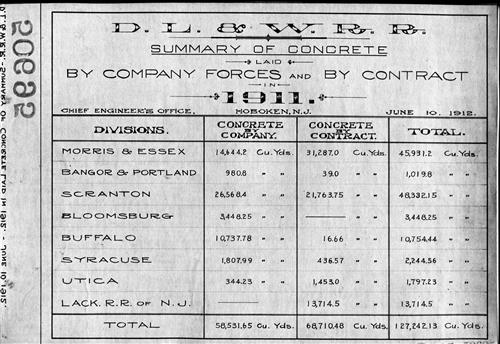 D. L. & W. R. R.
SUMMARY OF CONCRETE
LAID
BY COMPANY FORCES AND BY CONTRACT
IN
1911.
CHIEF ENGINEER'S OFFICE, HOBOKEN, N.J. JUNE 10, 1912.
DIVISIONS. CONCRETE BY COMPANY. CONCRETE BY CONTRACT. TOTAL.
MORRIS & ESSEX 14,644.2 Cu. Yds. 31,287.0 Cu. Yds. 45,931.2 Cu. Yds.
BANGOR & PORTLAND 980.8 " " 39.0 " " 1,019.8 " "
SCRANTON 26,568.4 " " 21,763.75 " " 48,332.15 " "
BLOOMSBURG 3,448.25 " " — " " 3,448.25 " "
BUFFALO 10,737.78 " " 16.66 " " 10,754.44 " "
SYRACUSE 1,807.99 " " 436.57 " " 2,244.56 " "
UTICA 344.23 " " 1,453.0 " " 1,797.23 " "
LACK. R.R. OF N.J. — 13,714.5 " " 13,714.5 " "
TOTAL 58,531.65 Cu. Yds. 68,710.48 Cu. Yds. 127,242.13 Cu. Yds.
20692